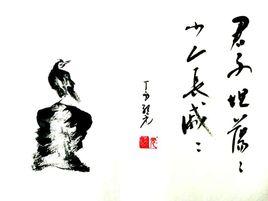 君子坦蕩〻
小人長戚〻
丁酉